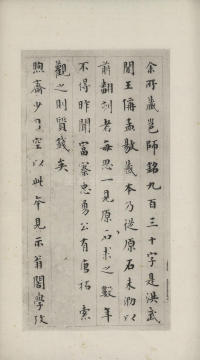 余所藏邕師銘九百三十字是洪武
間王偁孟敭藏本乃從原石未泐以
前翻刻者每思一見原石求之數年
不得昨聞富察忠勇公有唐拓索
觀之則質錢矣
煦齋少司空以此本見示翁閣學攷